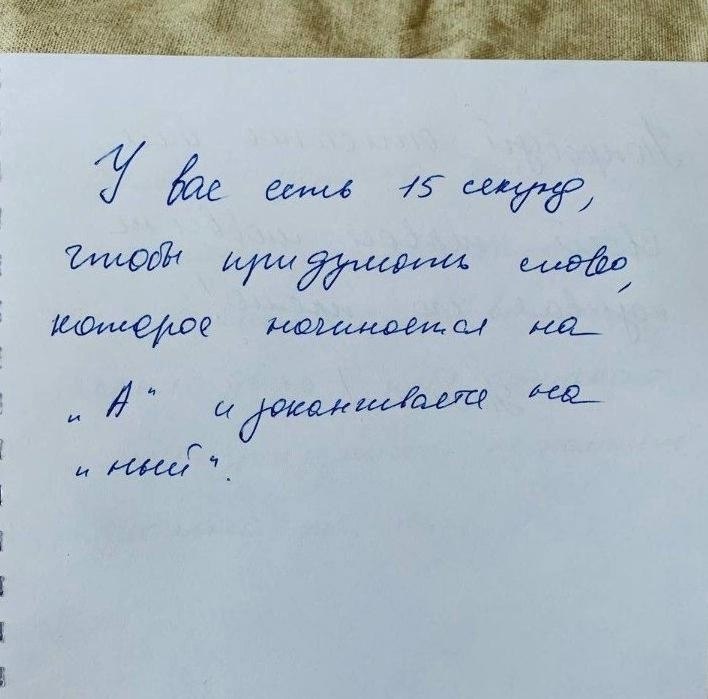 У вас есть 15 секунд,
чтобы придумать слово,
которое начинается на
„А" и заканчивается на
„ный".